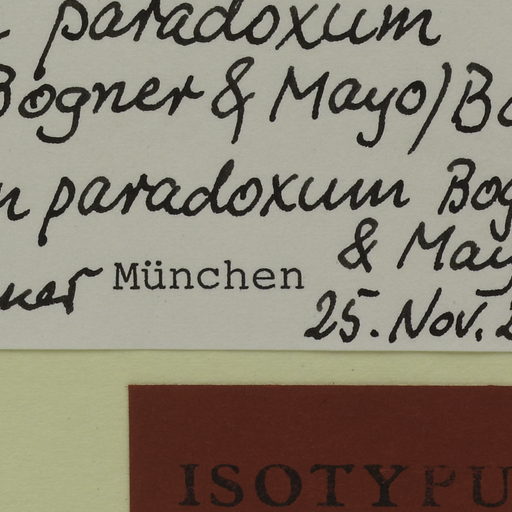 paradoxum
Bogner & Mayo) Bo
m paradoxum Bog
& May
ner München
25. Nov. 2
ISOTYPU